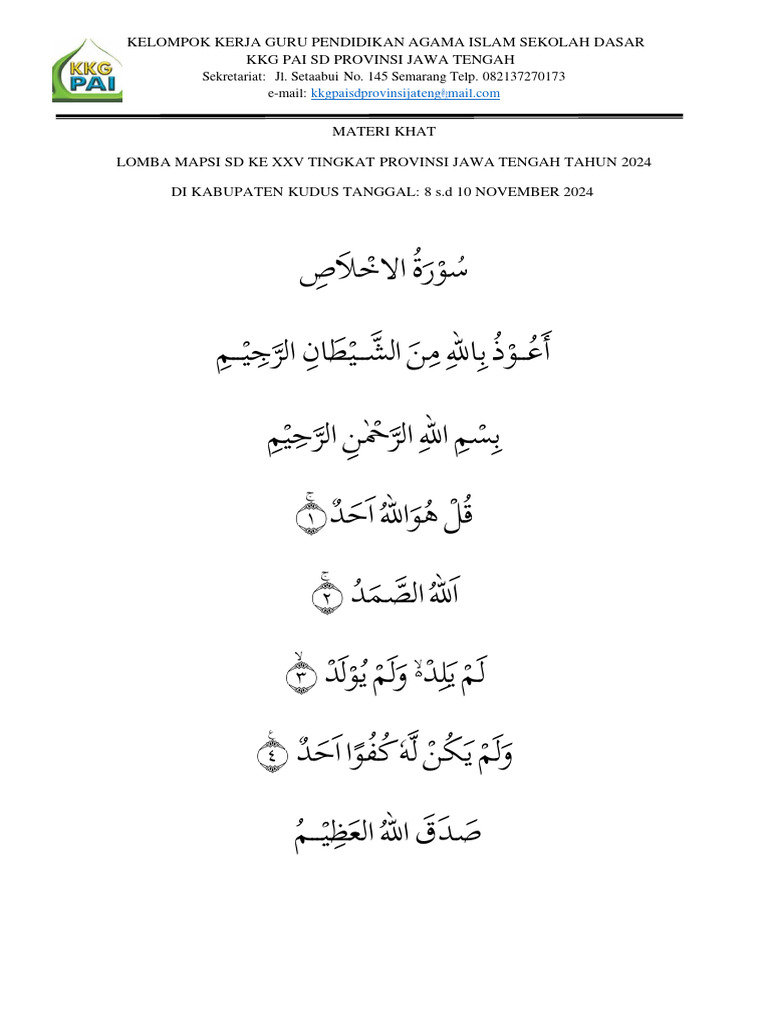 KKG
PAI
KELOMPOK KERJA GURU PENDIDIKAN AGAMA ISLAM SEKOLAH DASAR
KKG PAI SD PROVINSI JAWA TENGAH
Sekretariat: Jl. Setaabui No. 145 Semarang Telp. 082137270173
e-mail: kkgpaisdprovinsijateng@mail.com
MATERI KHAT
LOMBA MAPSI SD KE XXV TINGKAT PROVINSI JAWA TENGAH TAHUN 2024
DI KABUPATEN KUDUS TANGGAL: 8 s.d 10 NOVEMBER 2024
سُوْرَةُ الاخْلاَصِ
أَعُــوْذُ بِاللهِ مِنَ الشَّــيْطَانِ الرَّجِيْــمِ
بِسْمِ اللهِ الرَّحْمٰنِ الرَّحِيْمِ
قُلْ هُوَاللهُ اَحَدٌۚ ۝١
اَللهُ الصَّمَدُۚ ۝٢
لَمْ يَلِدْەۙ وَلَمْ يُوْلَدْۙ ۝٣
وَلَمْ يَكُنْ لَّهٗ كُفُوًا اَحَدٌ ࣖ ۝٤
صَدَقَ اللهُ العَظِيْــمُ